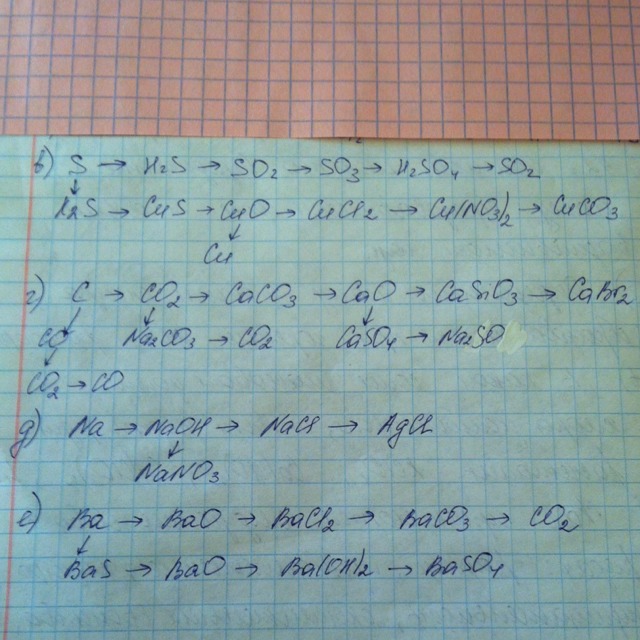 в) S → H₂S → SO₂ → SO₃ → H₂SO₄ → SO₂
↓
→ CuS → CuO → CuCl₂ → Cu(NO₃)₂ → CuCO₃
↓
Cu
г) C → CO₂ → CaCO₃ → CaO → CaSiO₃ → CaBr₂
↓ ↓ ↓
CO Na₂CO₃ → CO₂ CaSO₄ → Na₂SO
↓
CO₂ → CO
д) Na → NaOH → NaCl → AgCl
↓
NaNO₃
е) Ba → BaO → BaCl₂ → BaCO₃ → CO₂
↓
BaS → BaO → Ba(OH)₂ → BaSO₄